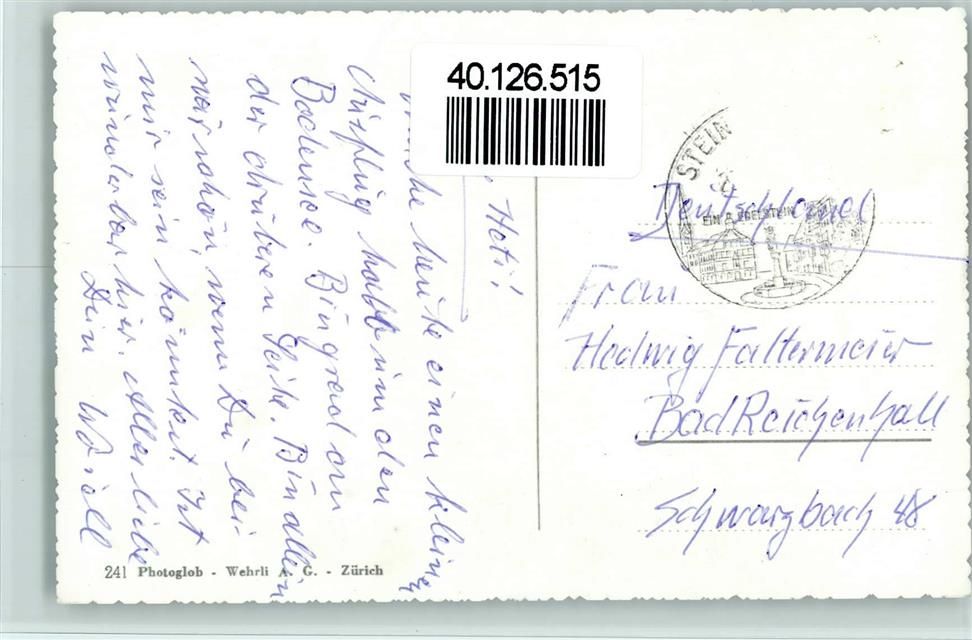 40.126.515
Heti!
heute einen kleinen
Ausflug halb um den
Bodensee. Bin grad an
der drüberen Seite. Bin allein
wär schön, wenn Du bei
mir sein könntest. Ist
wunderbar hier. Alles liebe
Dein
241 Photoglob - Wehrli A. G. - Zürich
STEIN
EIN EDELSTEIN
Deutschland
Frau
Hedwig Faltermeier
Bad Reichenhall
Schwarzbach 48